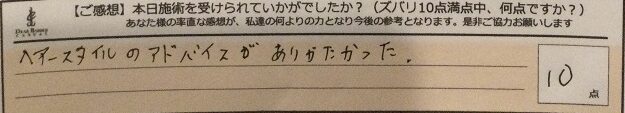 【ご感想】本日施術を受けられていかがでしたか？（ズバリ10点満点中、何点ですか？）
あなた様の率直な感想が、私達の何よりの力となり今後の参考となります。是非ご協力お願いします
ヘアースタイルのアドバイスが ありがたかった.
10
点